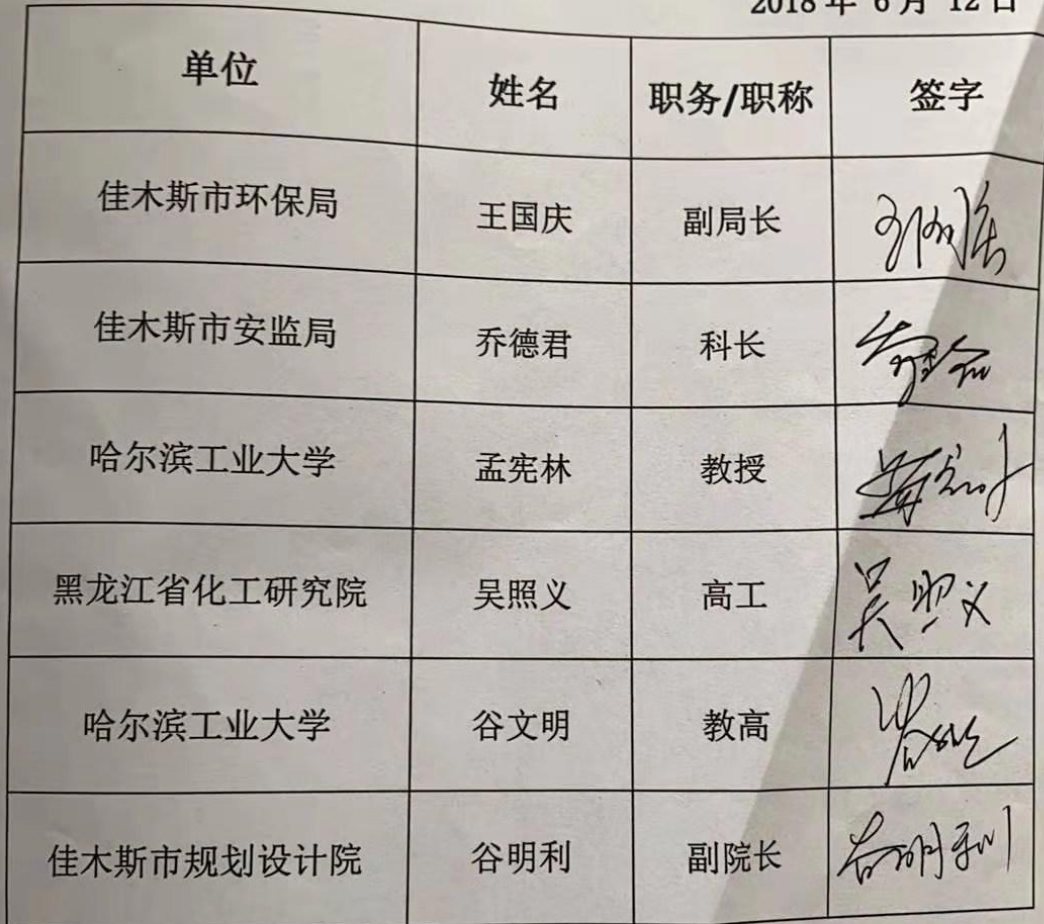 2018 年 6 月 12 日
单位 姓名 职务/职称 签字
佳木斯市环保局 王国庆 副局长 王国庆
佳木斯市安监局 乔德君 科长
哈尔滨工业大学 孟宪林 教授 孟宪林
黑龙江省化工研究院 吴照义 高工 吴照义
哈尔滨工业大学 谷文明 教高
佳木斯市规划设计院 谷明利 副院长 谷明利